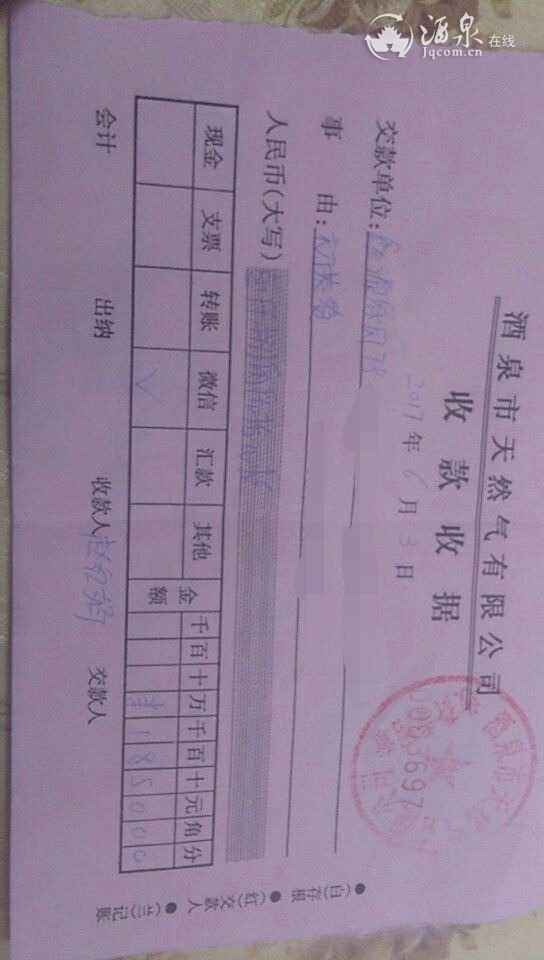 酒泉在线
Jqcom.cn
酒泉市天然气有限公司
收款收据
2017年6月3日
0053697
交款单位:
事由:初装费
人民币(大写)
现金 支票 转账 微信 汇款 其他 金额 千 百 十 万 千 百 十 元 角 分
√ ¥ 1 8 5 0 0 0
会计 出纳 收款人 交款人
●(白)存根 ●(红)交款人 ●(兰)记账